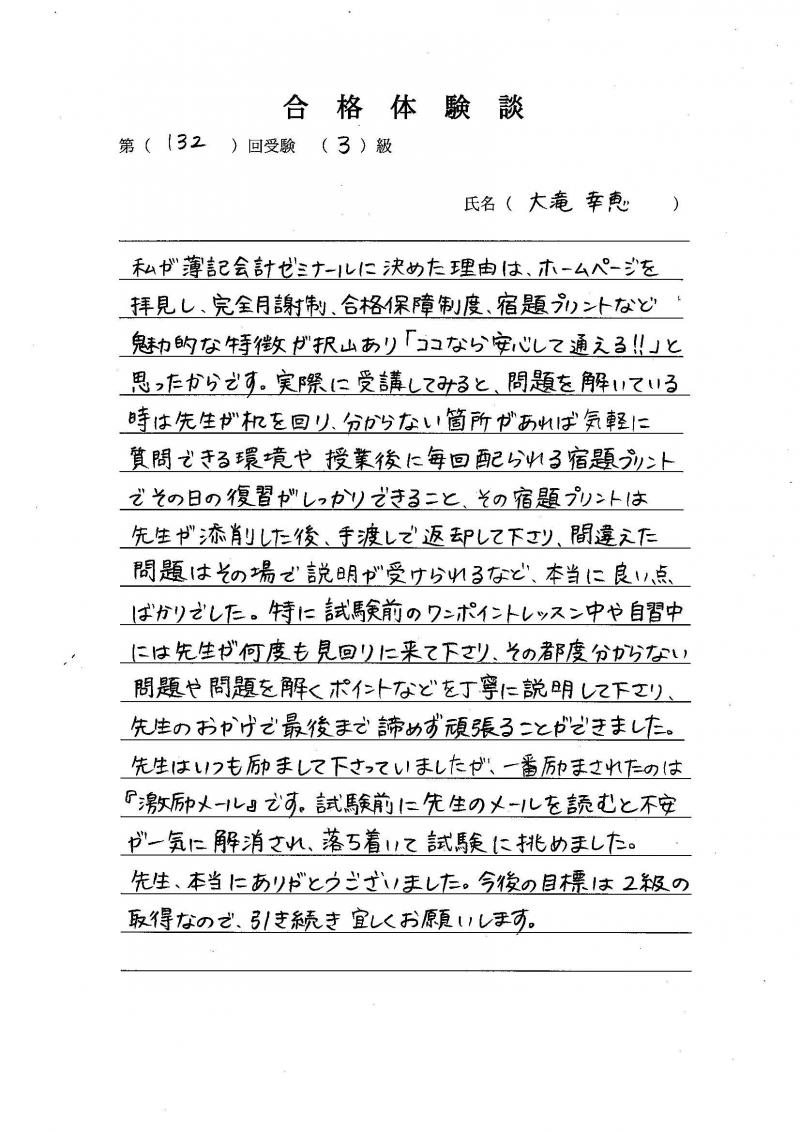 合格体験談
第（ 132 ）回受験 （ 3 ）級
氏名（ 大滝 幸恵 ）
私が簿記会計ゼミナールに決めた理由は、ホームページを
拝見し、完全月謝制、合格保障制度、宿題プリントなど
魅力的な特徴が沢山あり「ココなら安心して通える!!」と
思ったからです。実際に受講してみると、問題を解いている
時は先生が机を回り、分からない箇所があれば気軽に
質問できる環境や 授業後に毎回配られる宿題プリント
でその日の復習がしっかりできること、その宿題プリントは
先生が添削した後、手渡しで返却して下さり、間違えた
問題はその場で説明が受けられるなど、本当に良い点
ばかりでした。特に試験前のワンポイントレッスン中や自習中
には先生が何度も見回りに来て下さり、その都度分からない
問題や問題を解くポイントなどを丁寧に説明して下さり、
先生のおかげで最後まで諦めず頑張ることができました。
先生はいつも励まして下さっていましたが、一番励まされたのは
『激励メール』です。試験前に先生のメールを読むと不安
が一気に解消され、落ち着いて試験に挑めました。
先生、本当にありがとうございました。今後の目標は2級の
取得なので、引き続き宜しくお願いします。